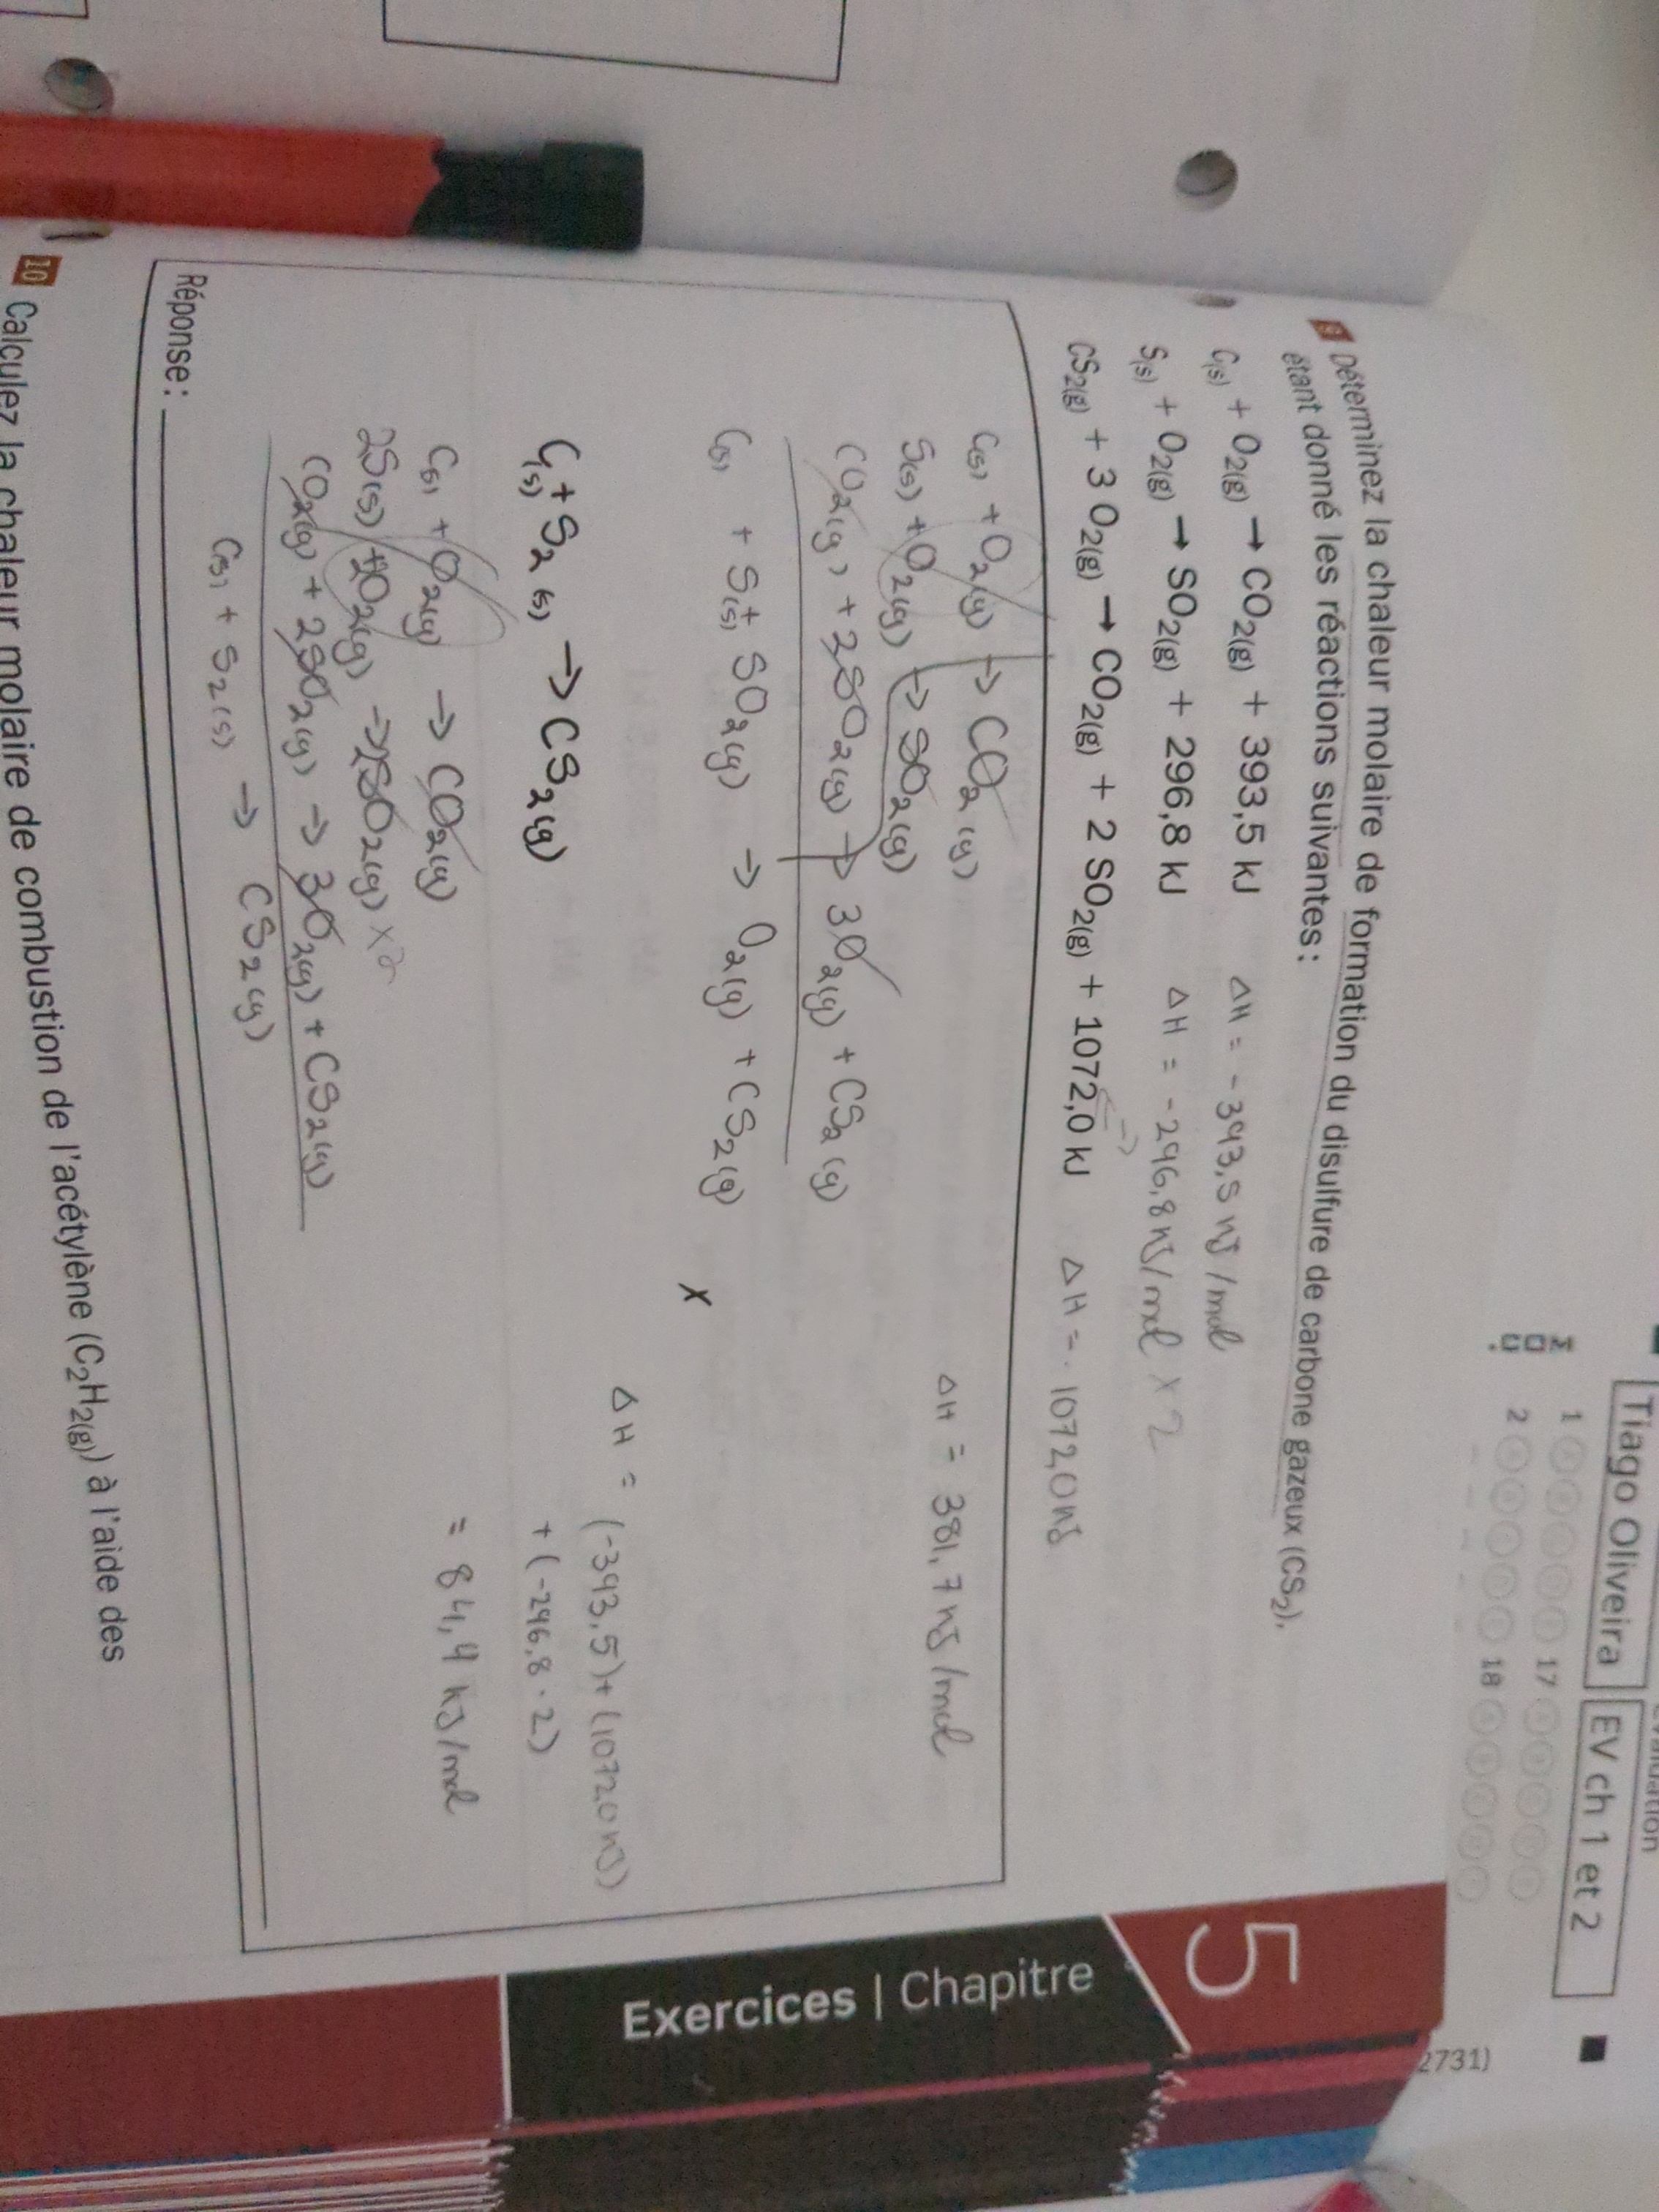 Évaluation
Tiago Oliveira EV ch 1 et 2
1 17
2 18
2731)
9 Déterminez la chaleur molaire de formation du disulfure de carbone gazeux (CS2),
étant donné les réactions suivantes :
C(s) + O2(g) → CO2(g) + 393,5 kJ ΔH = -393,5 kJ/mol
S(s) + O2(g) → SO2(g) + 296,8 kJ ΔH = -296,8 kJ/mol × 2
CS2(g) + 3 O2(g) → CO2(g) + 2 SO2(g) + 1072,0 kJ ΔH = -1072,0 kJ
C(s) + O2(g) → CO2(g)
S(s) + O2(g) → SO2(g)
CO2(g) + 2SO2(g) → 3O2(g) + CS2(g)
ΔH = 381,7 kJ/mol
C(s) + S(s) + SO2(g) → O2(g) + CS2(g)
X
C(s) + S2(s) → CS2(g)
ΔH = (-393,5) + (1072,0 kJ)
+ (-296,8 · 2)
= 84,4 kJ/mol
C(s) + O2(g) → CO2(g)
2S(s) + 2O2(g) → 2SO2(g) x2
CO2(g) + 2SO2(g) → 3O2(g) + CS2(g)
C(s) + S2(s) → CS2(g)
Réponse :
10 Calculez la chaleur molaire de combustion de l'acétylène (C2H2(g)) à l'aide des
5
Exercices | Chapitre